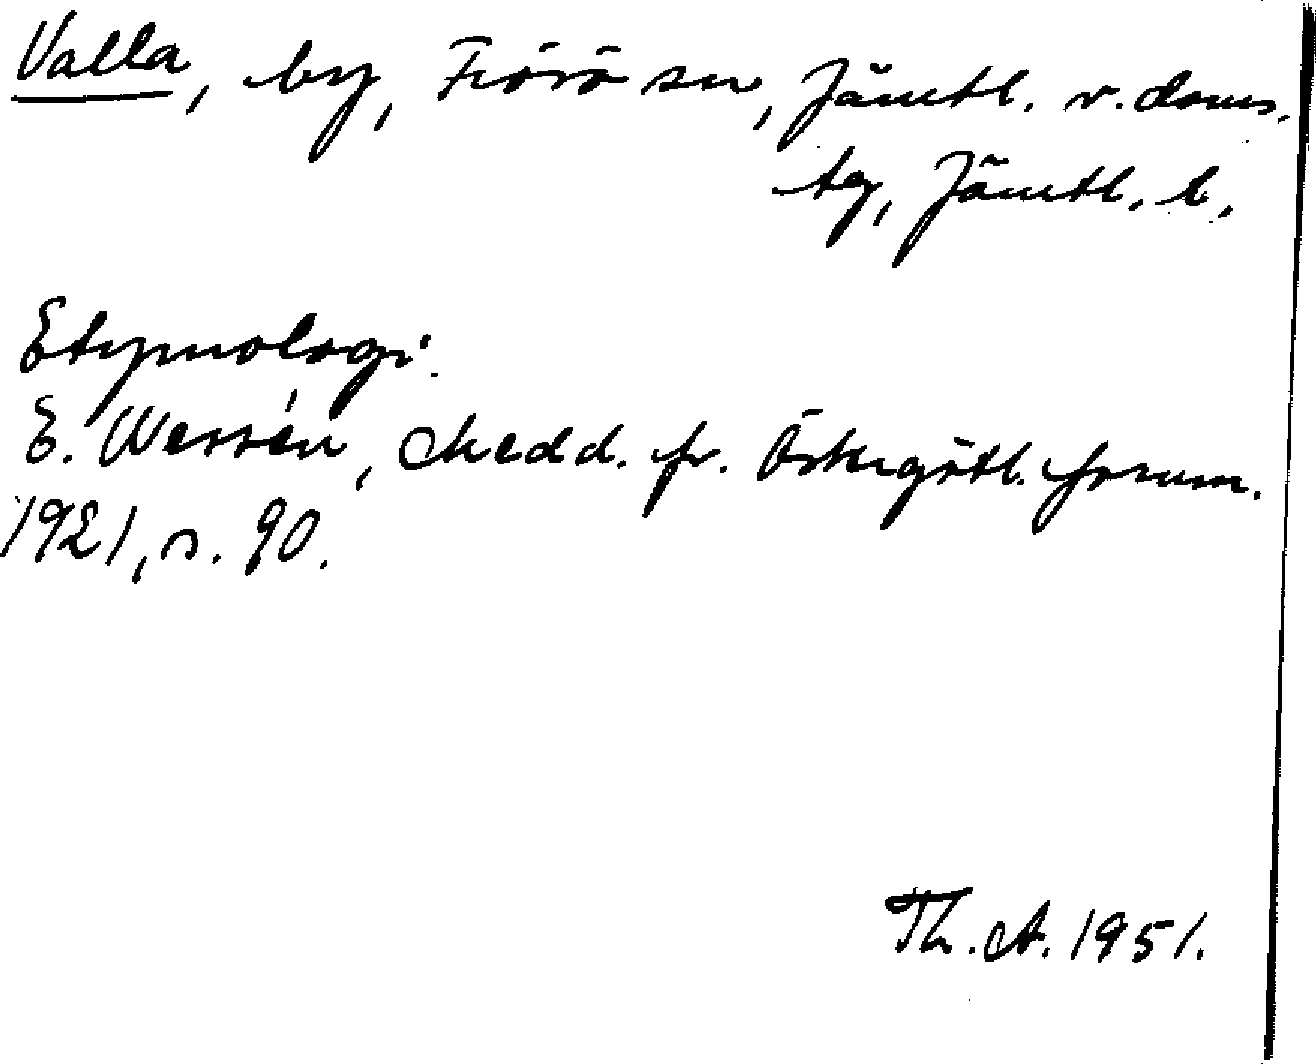 Valla, by, Frösö sn, Jämtl. v. doms.
tg, Jämtl. l.
Etymologi:
E. Wessén, Medd. fr. Östergötl. fornm.
1921, s. 90.
Th. A. 1951.